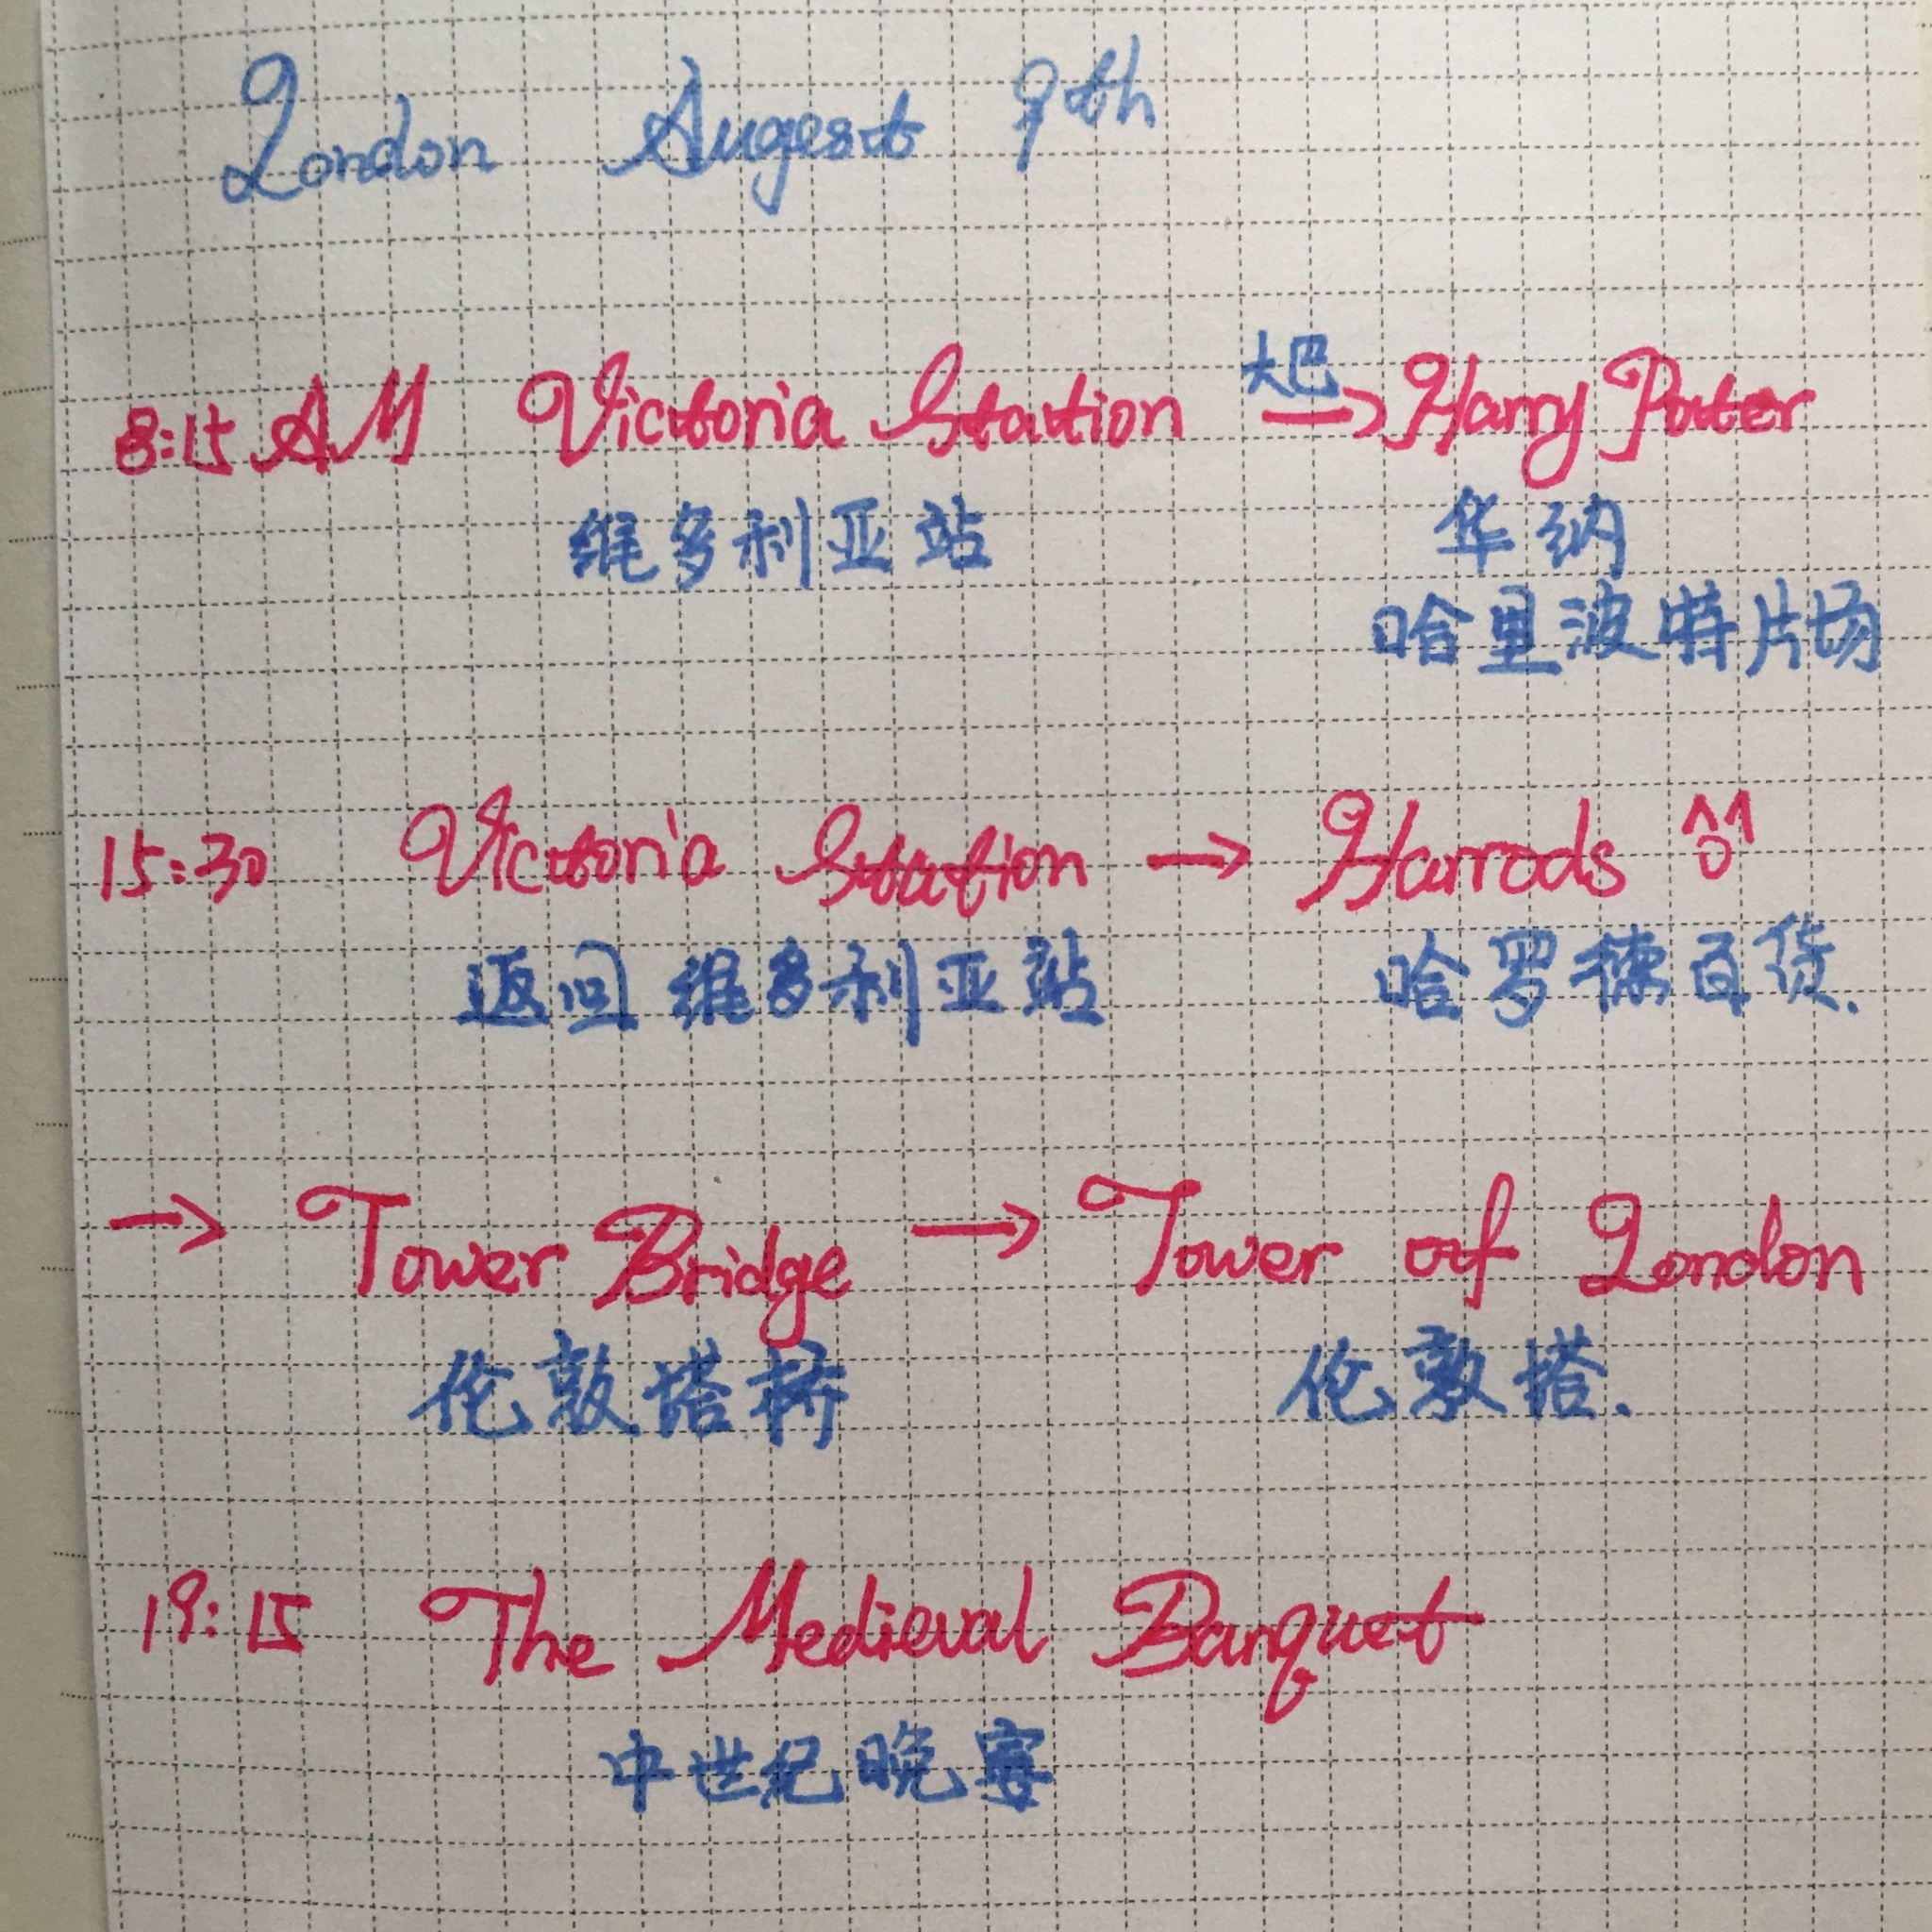 London Augest 9th
大巴
8:15 AM Victoria Station → Harry Poter
维多利亚站 华纳
哈里波特片场
15:30 Victoria Station → Harrods
返回 维多利亚站 哈罗德百货.
→ Tower Bridge → Tower of London
伦敦塔桥 伦敦塔.
19:15 The Medieval Banquet
中世纪晚宴